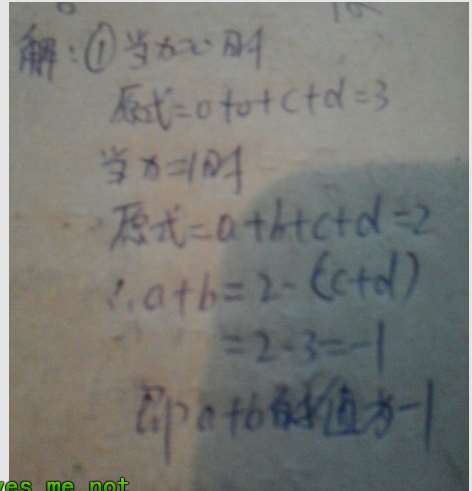 解:①当x=0时
原式=0+0+c+d=3
当x=1时
原式=a+b+c+d=2
∴a+b=2-(c+d)
=2-3=-1
即a+b的值为-1
es me not